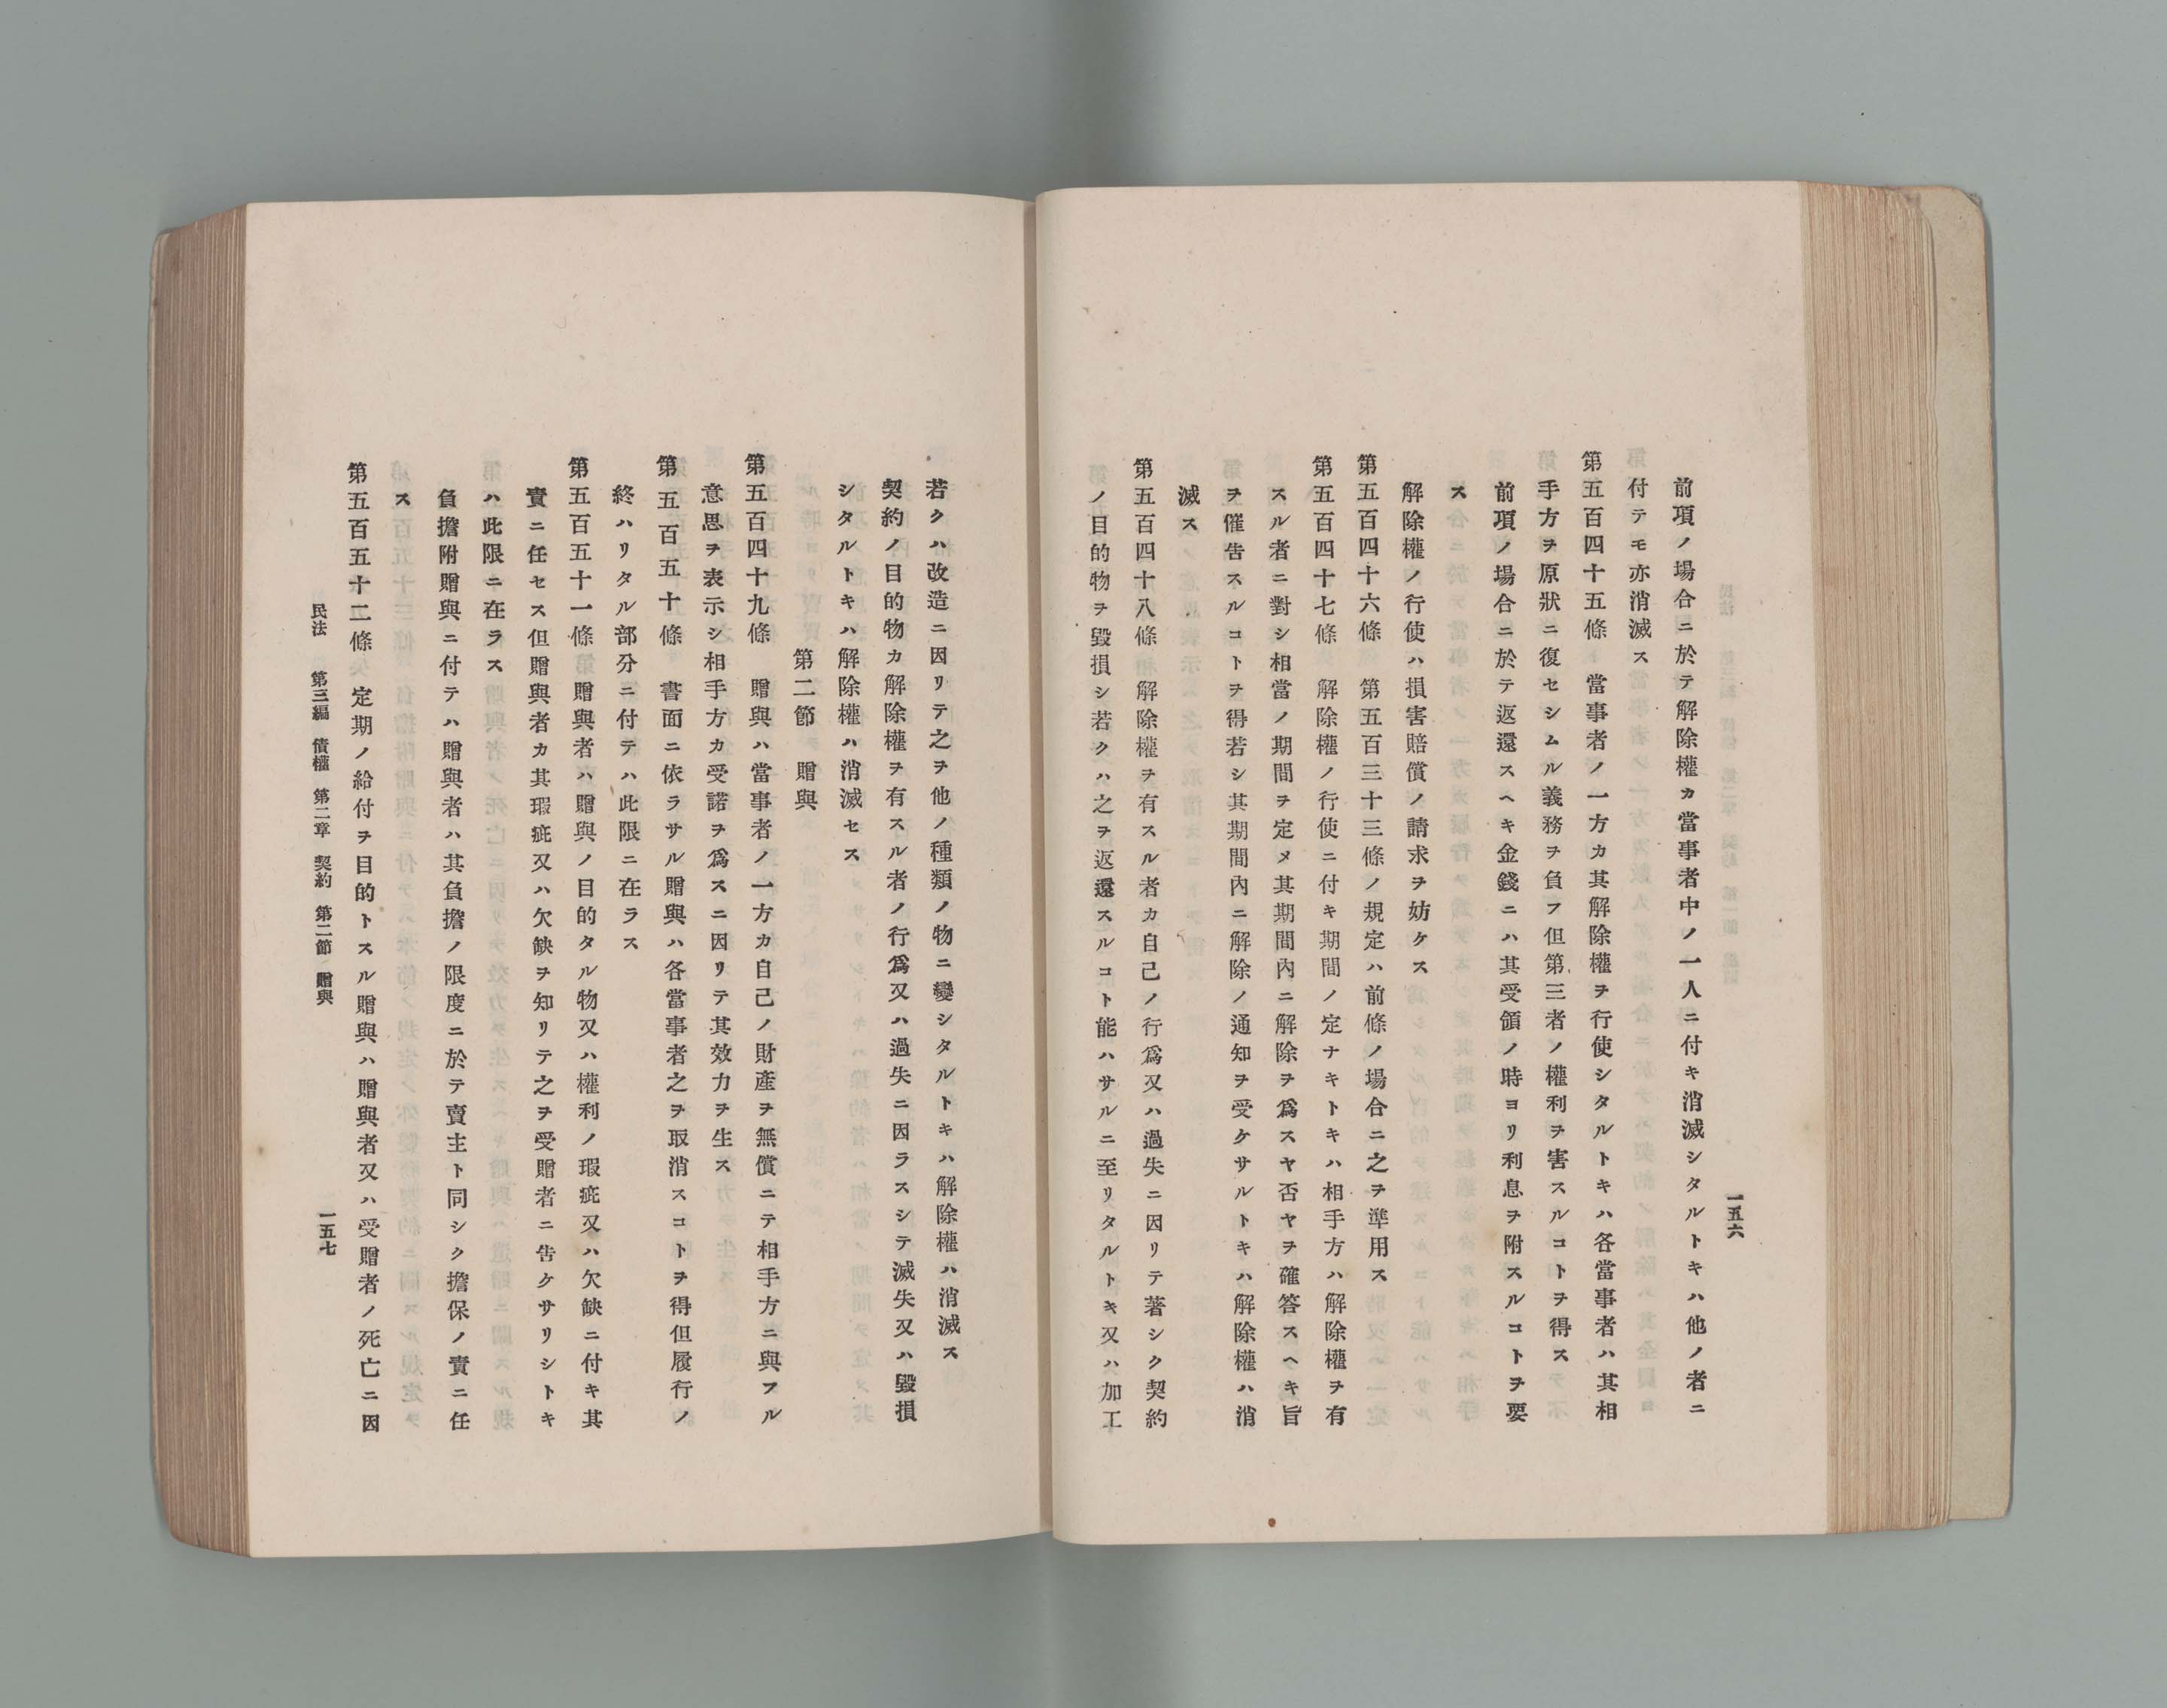 一五六
前項ノ場合ニ於テ解除權カ當事者中ノ一人ニ付キ消滅シタルトキハ他ノ者ニ
付テモ亦消滅ス
第五百四十五條 當事者ノ一方カ其解除權ヲ行使シタルトキハ各當事者ハ其相
手方ヲ原狀ニ復セシムル義務ヲ負フ但第三者ノ權利ヲ害スルコトヲ得ス
前項ノ場合ニ於テ返還スヘキ金錢ニハ其受領ノ時ヨリ利息ヲ附スルコトヲ要
ス
解除權ノ行使ハ損害賠償ノ請求ヲ妨ケス
第五百四十六條 第五百三十三條ノ規定ハ前條ノ場合ニ之ヲ準用ス
第五百四十七條 解除權ノ行使ニ付キ期間ノ定ナキトキハ相手方ハ解除權ヲ有
スル者ニ對シ相當ノ期間ヲ定メ其期間內ニ解除ヲ爲スヤ否ヤヲ確答スヘキ旨
ヲ催告スルコトヲ得若シ其期間內ニ解除ノ通知ヲ受ケサルトキハ解除權ハ消
滅ス
第五百四十八條 解除權ヲ有スル者カ自己ノ行爲又ハ過失ニ因リテ著シク契約
ノ目的物ヲ毀損シ若クハ之ヲ返還スルコト能ハサルニ至リタルトキ又ハ加工
若クハ改造ニ因リテ之ヲ他ノ種類ノ物ニ變シタルトキハ解除權ハ消滅ス
契約ノ目的物カ解除權ヲ有スル者ノ行爲又ハ過失ニ因ラスシテ滅失又ハ毀損
シタルトキハ解除權ハ消滅セス
第二節 贈與
第五百四十九條 贈與ハ當事者ノ一方カ自己ノ財產ヲ無償ニテ相手方ニ與フル
意思ヲ表示シ相手方カ受諾ヲ爲スニ因リテ其效力ヲ生ス
第五百五十條 書面ニ依ラサル贈與ハ各當事者之ヲ取消スコトヲ得但履行ノ
終ハリタル部分ニ付テハ此限ニ在ラス
第五百五十一條 贈與者ハ贈與ノ目的タル物又ハ權利ノ瑕疵又ハ欠缺ニ付キ其
責ニ任セス但贈與者カ其瑕疵又ハ欠缺ヲ知リテ之ヲ受贈者ニ告ケサリシトキ
ハ此限ニ在ラス
負擔附贈與ニ付テハ贈與者ハ其負擔ノ限度ニ於テ賣主ト同シク擔保ノ責ニ任
ス
第五百五十二條 定期ノ給付ヲ目的トスル贈與ハ贈與者又ハ受贈者ノ死亡ニ因
民法 第三編 債權 第二章 契約 第二節 贈與 一五七